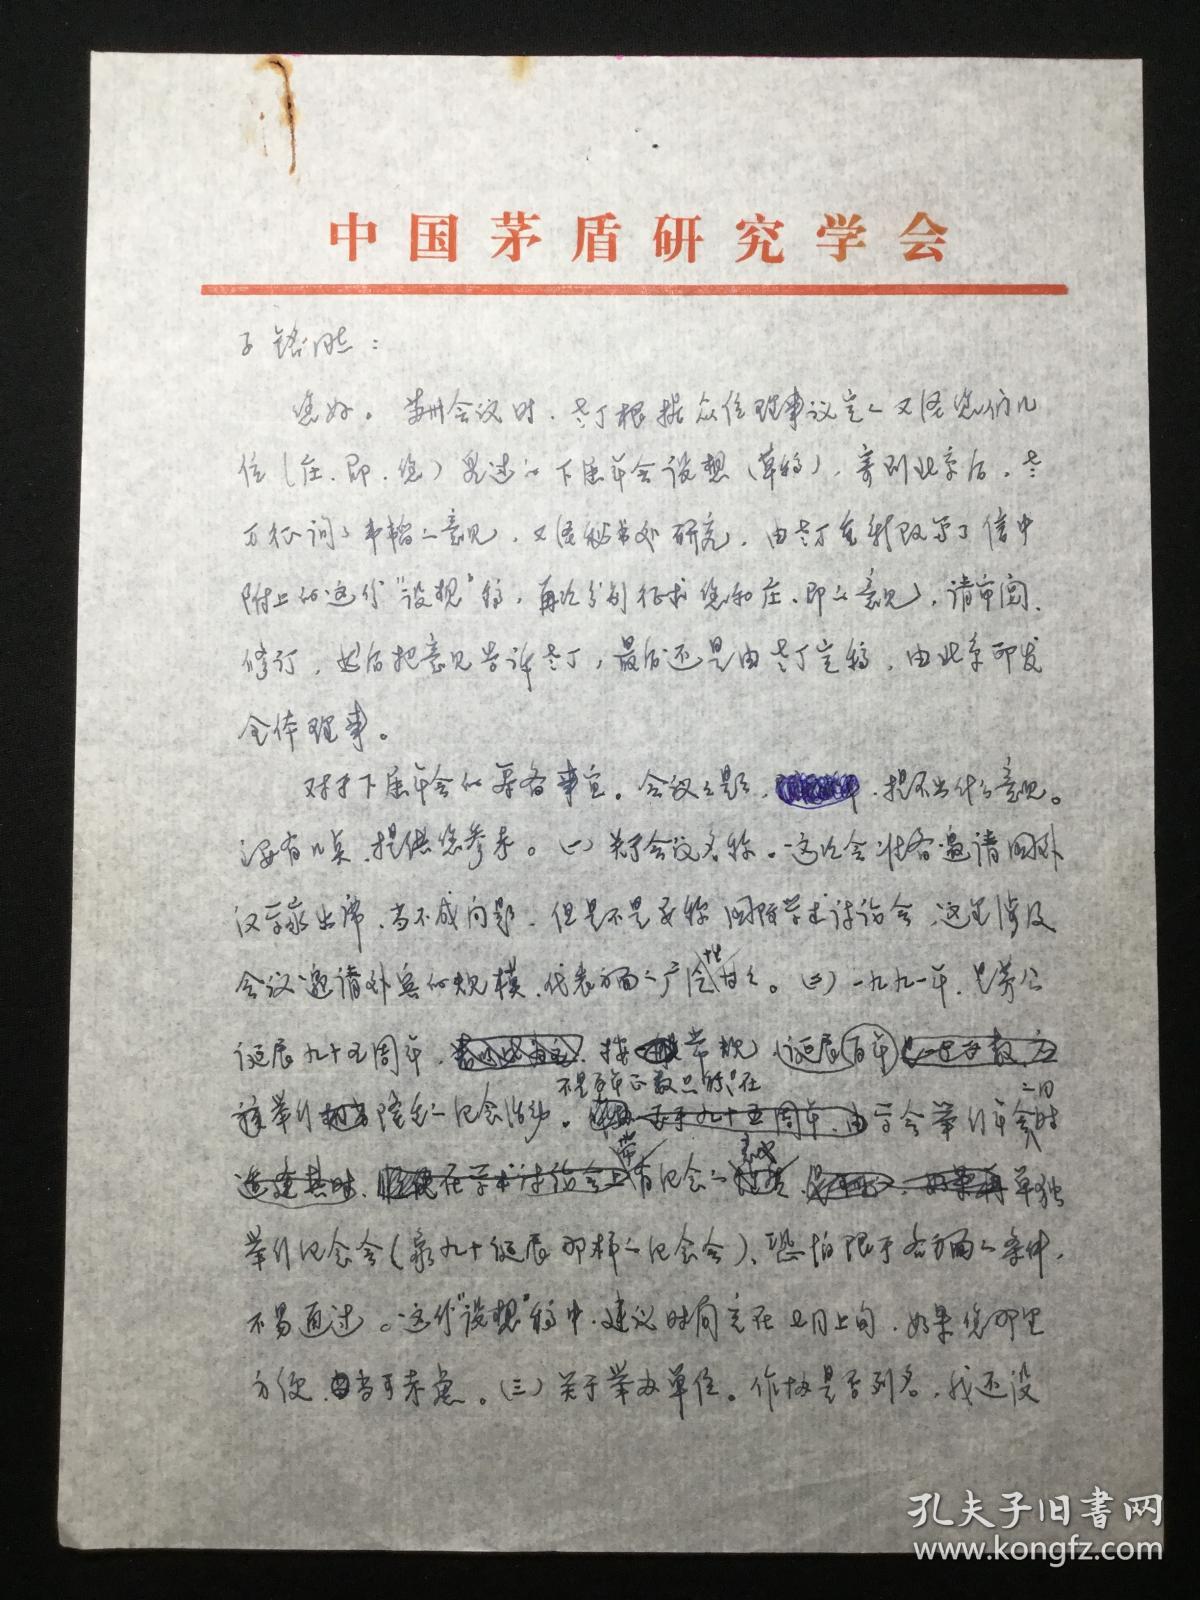 中国茅盾研究学会
子铭同志：
您好。苏州会议时，老丁根据众位理事议定、又经您们几
位（庄、邵、您）是过的下届年会设想（草稿），寄到北京后，老
万征询了韦韬的意见，又经秘书处研究，由老丁重新改写了信中
附上的这份“设想”稿，再次分别征求您和庄、邵的意见，请审阅、
修订，然后把意见告诉老丁，最后还是由老丁定稿，由北京印发
全体理事。
对于下届年会的筹备事宜。会议主题，提不出什么意见。
没有几点，提供您参考。（一）关于会议名称。这次会准备邀请国外
汉学家出席，当不成问题，但是不是要称国际学术讨论会，这里涉及
会议邀请外宾的规模、代表方面的广泛性。（二）一九九一年，是茅公
诞辰九十五周年，按常规（诞辰百年
不是百年正数只能在
举行隆重的纪念活动。学会举行年会时
带有纪念的 单独
举行纪念会（象九十诞辰那样的纪念会），恐怕限于各方面的条件，
不易通过。这份“设想”稿中，建议时间定在七月上旬，如果您那里
方便，当可考虑。（三）关于举办单位。作协是否列名，我还没
孔夫子旧书网
www.kongfz.com